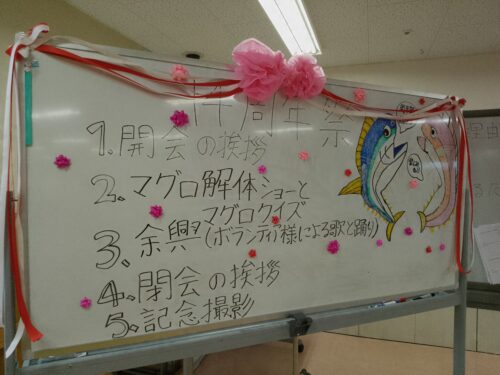 周年祭
1. 開会の挨拶
2. マグロ解体ショーと
マグロクイズ
3. 余興(ボランティア様による歌と踊り)
4. 閉会の挨拶
5. 記念撮影